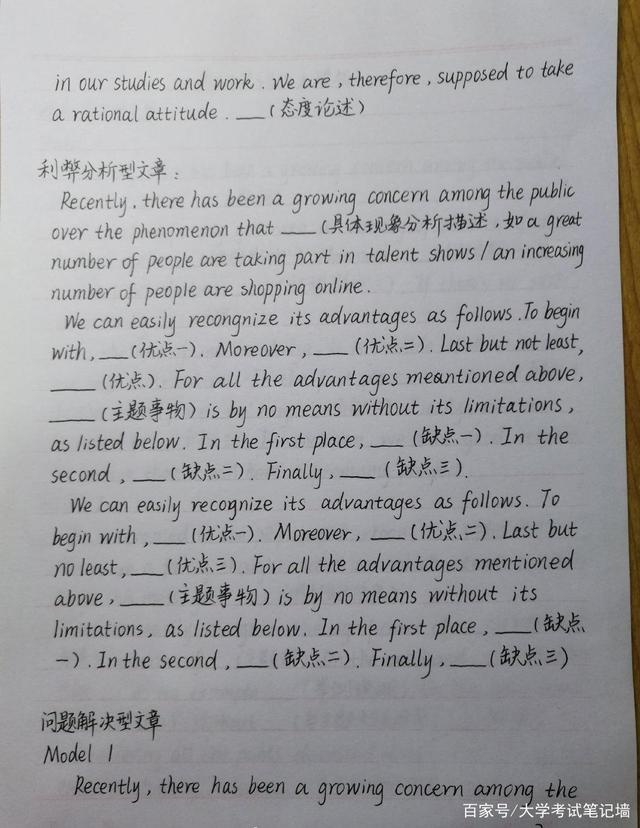 in our studies and work. We are, therefore, supposed to take
a rational attitude. ___(态度论述)
利弊分析型文章:
Recently, there has been a growing concern among the public
over the phenomenon that ___(具体现象分析描述,如a great
number of people are taking part in talent shows/an increasing
number of people are shopping online.
We can easily recongnize its advantages as follows.To begin
with,___(优点一). Moreover, ___(优点二). Last but not least,
____(优点). For all the advantages meantioned above,
____(主题事物) is by no means without its limitations,
as listed below. In the first place, ___(缺点一). In the
second, ___(缺点二). Finally, ___(缺点三).
We can easily recognize its advantages as follows. To
begin with, ___(优点一). Moreover, ___(优点二). Last but
no least, ___(优点三). For all the advantages mentioned
above, ____(主题事物) is by no means without its
limitations, as listed below. In the first place, ___(缺点
一). In the second, ___(缺点二). Finally, ___(缺点三)
问题解决型文章
Model 1
Recently, there has been a growing concern among the
百家号/大学考试笔记墙